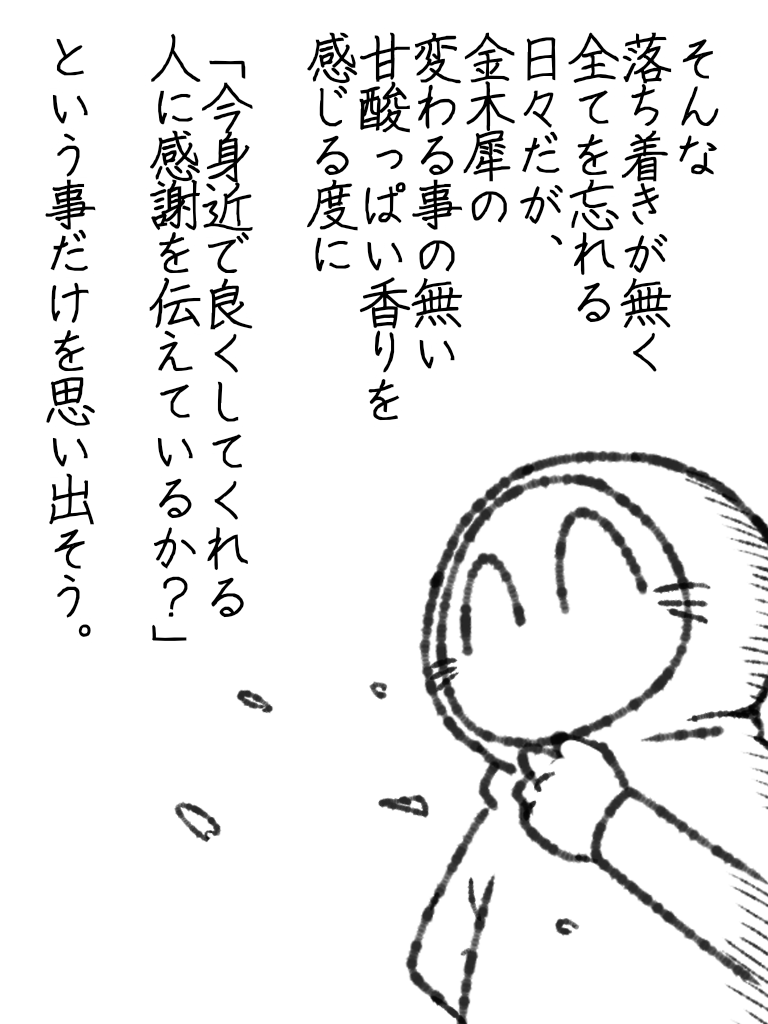 そんな
落ち着きが無く
全てを忘れる
日々だが、
金木犀の
変わる事の無い
甘酸っぱい香りを
感じる度に
「今身近で良くしてくれる
人に感謝を伝えているか？」
という事だけを思い出そう。